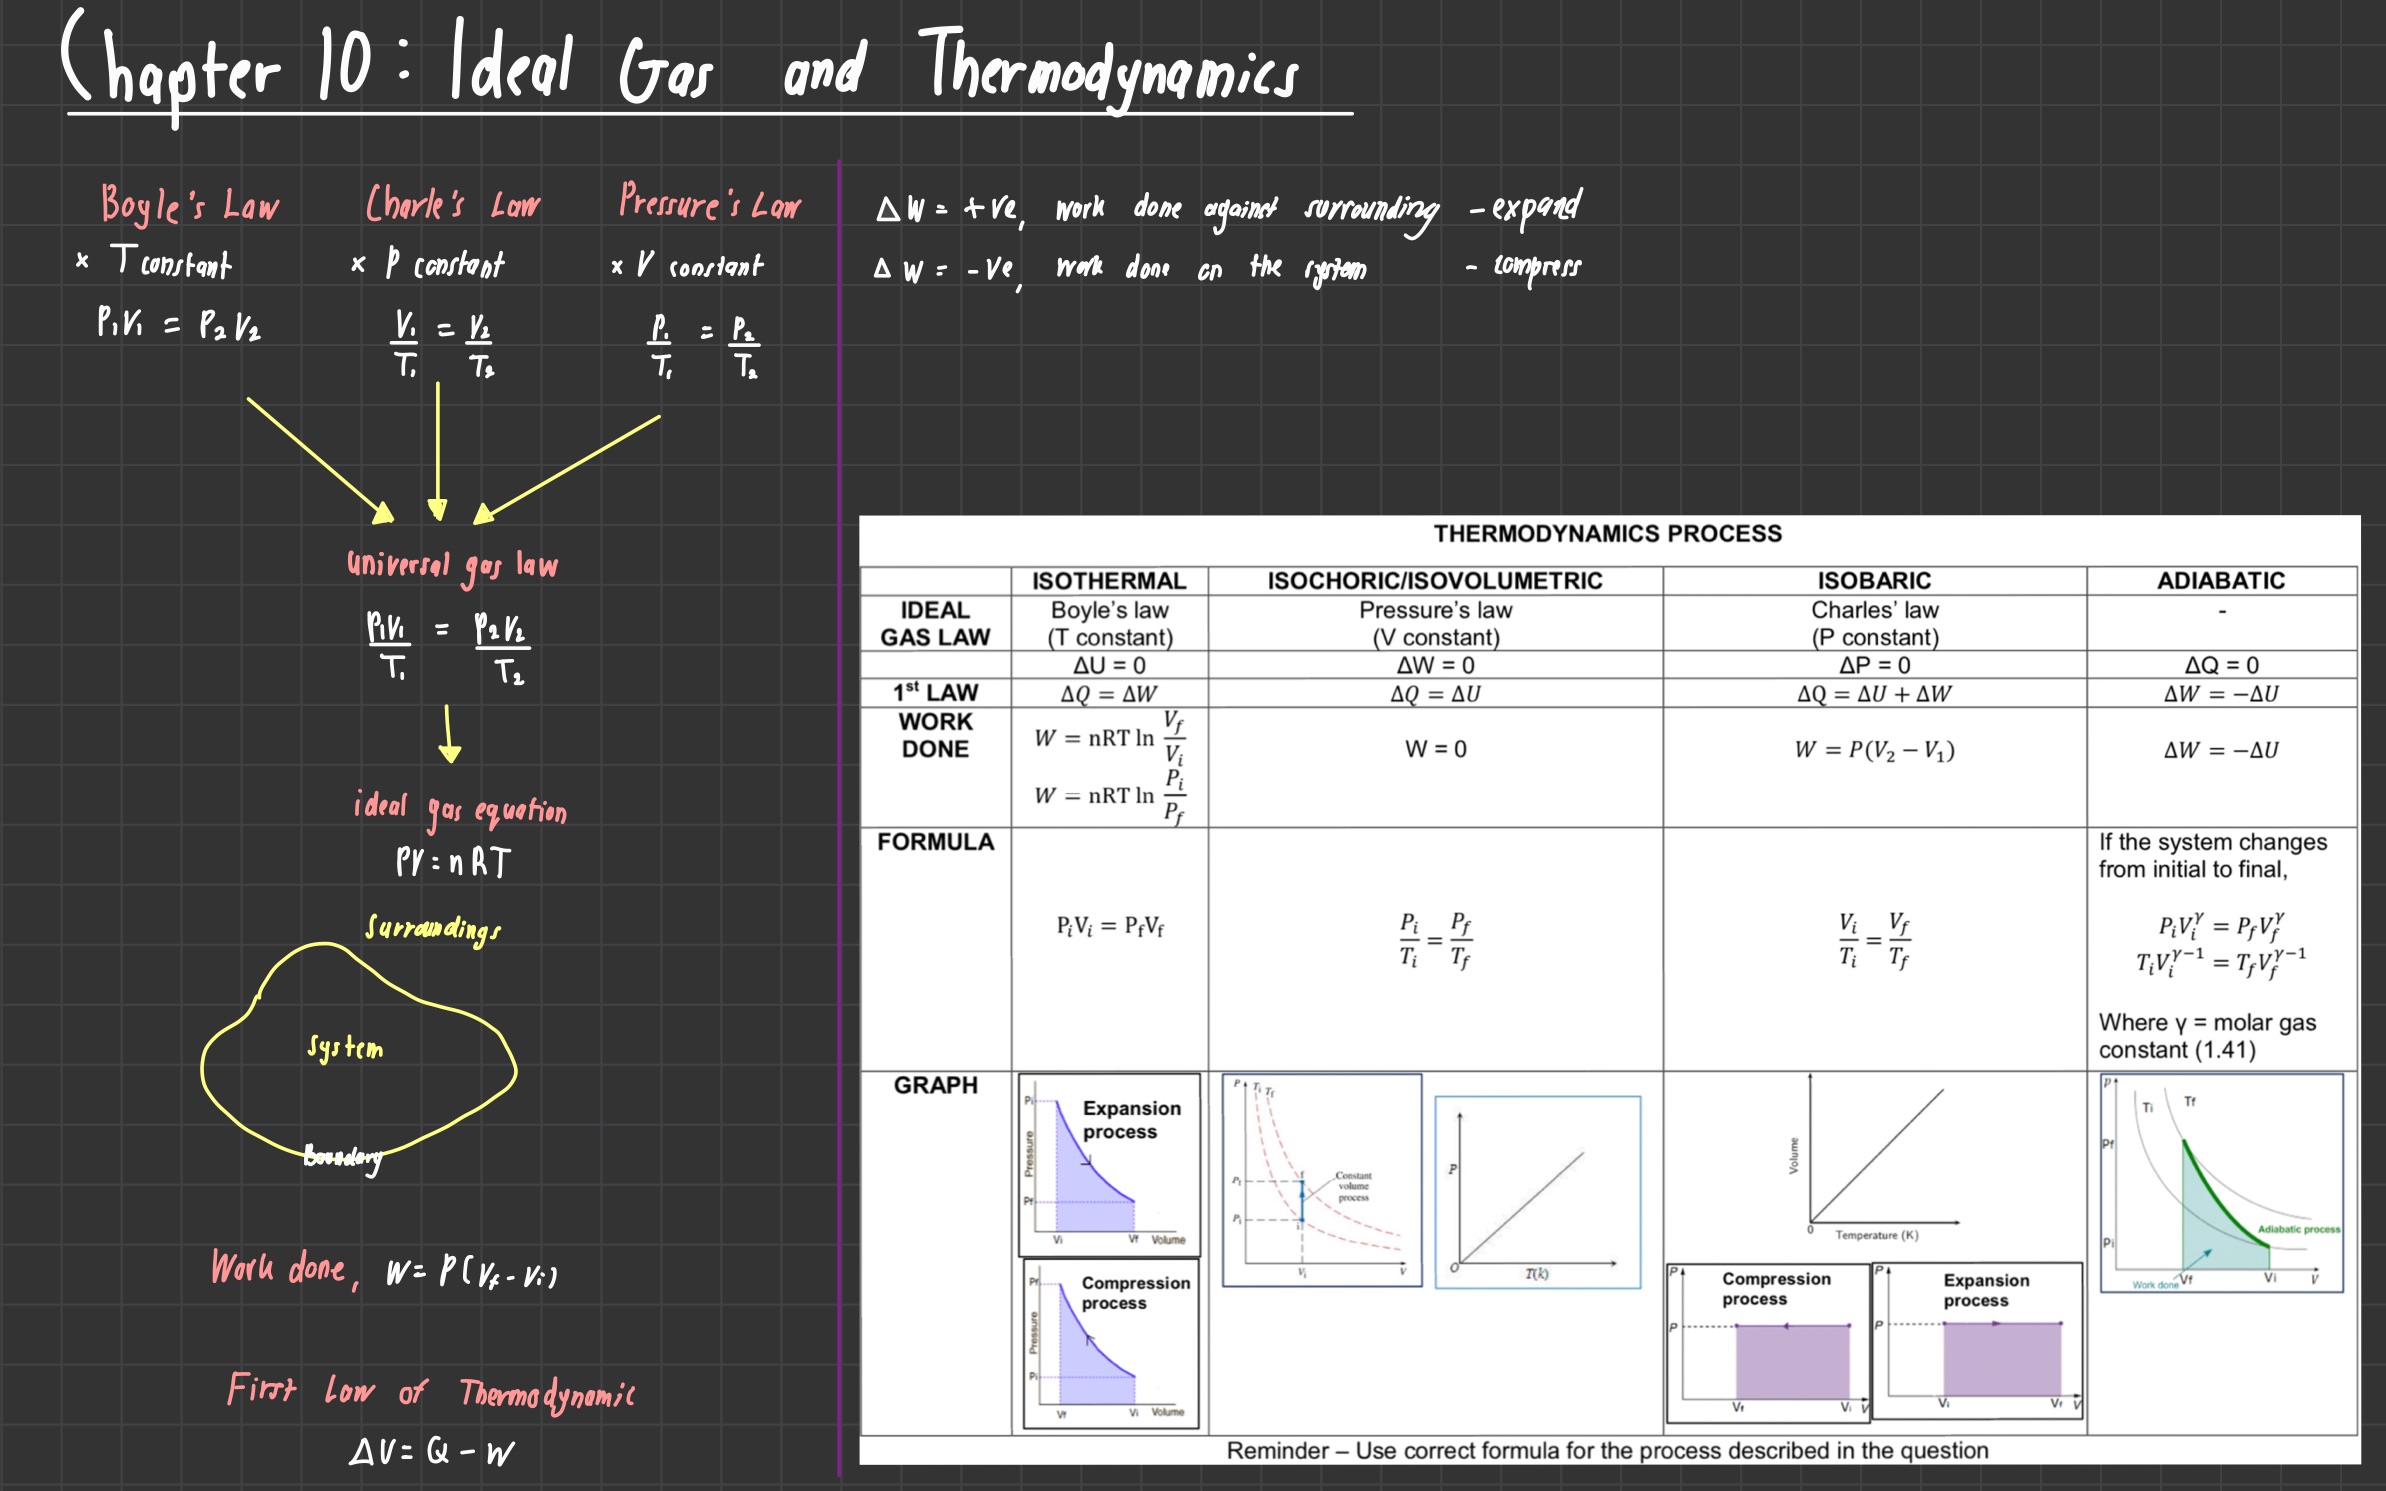 Chapter 10: Ideal Gas and Thermodynamics
Boyle's Law
× T constant
P₁V₁ = P₂V₂
Charle's Law
× P constant
V₁/T₁ = V₂/T₂
Pressure's Law
× V constant
P₁/T₁ = P₂/T₂
universal gas law
P₁V₁/T₁ = P₂V₂/T₂
ideal gas equation
PV = nRT
Surroundings
System
Boundary
Work done, W = P(Vf - Vi)
First Law of Thermodynamic
ΔU = Q - W
ΔW = +ve, work done against surrounding - expand
ΔW = -ve, work done on the system - compress
THERMODYNAMICS PROCESS
ISOTHERMAL ISOCHORIC/ISOVOLUMETRIC ISOBARIC ADIABATIC
IDEAL GAS LAW
Boyle's law
(T constant)
Pressure's law
(V constant)
Charles' law
(P constant)
-
ΔU = 0 ΔW = 0 ΔP = 0 ΔQ = 0
1st LAW ΔQ = ΔW ΔQ = ΔU ΔQ = ΔU + ΔW ΔW = −ΔU
WORK DONE
W = nRT ln Vf/Vi
W = nRT ln Pi/Pf
W = 0
W = P(V₂ − V₁)
ΔW = −ΔU
FORMULA
PiVi = PfVf
Pi/Ti = Pf/Tf
Vi/Ti = Vf/Tf
If the system changes
from initial to final,
PiVi^γ = PfVf^γ
TiVi^γ−1 = TfVf^γ−1
Where γ = molar gas
constant (1.41)
GRAPH
Expansion
process
Pressure
Pi
Pf
Vi
Vf
Volume
Compression
process
Pressure
Pf
Pi
Vf
Vi
Volume
P
Ti Tf
Constant
volume
process
Pf
Pi
f
i
Vi
V
P
O
T(k)
Volume
0
Temperature (K)
P
Compression
process
P
Vf
Vi
V
P
Expansion
process
P
Vi
Vf
V
P
Ti
Tf
Pf
Pi
Adiabatic process
Work done
Vf
Vi
V
Reminder – Use correct formula for the process described in the question